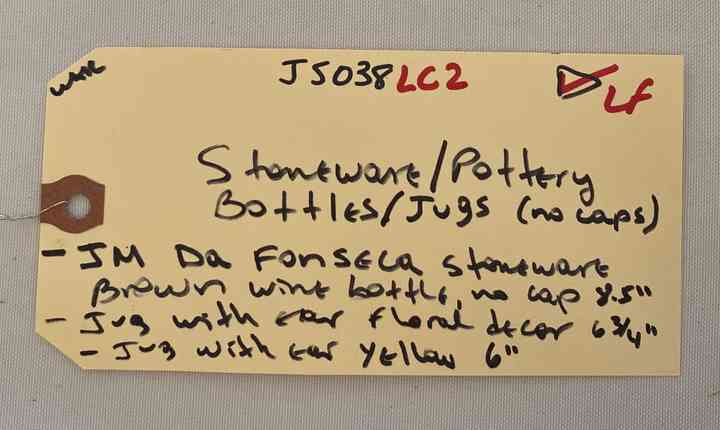 WMC
J5038LC2
LF
Stoneware/Pottery
Bottles/Jugs (no caps)
- JM Da Fonseca stoneware
Brown wine bottle, no cap 8.5"
- Jug with ear floral decor 6 3/4"
- Jug with ear yellow 6"